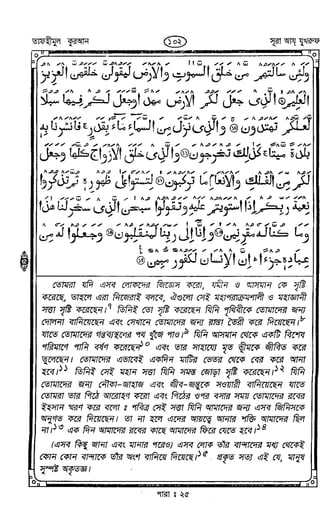 তাফহীমুল কুরআন
১০২
সূরা আয্ যুখরুফ
وَلَئِنْ سَأَلْتَهُمْ مَّنْ خَلَقَ السَّمٰوٰتِ وَالْاَرْضَ لَيَقُوْلُنَّ خَلَقَهُنَّ الْعَزِيْزُ
الْعَلِيْمُ ۞ الَّذِىْ جَعَلَ لَكُمُ الْاَرْضَ مَهْدًا وَّجَعَلَ لَكُمْ فِيْهَا سُبُلًا
لَّعَلَّكُمْ تَهْتَدُوْنَ ۞ وَالَّذِىْ نَزَّلَ مِنَ السَّمَآءِ مَآءًۢ بِقَدَرٍ ۚ فَاَنْشَرْنَا بِهٖ
بَلْدَةً مَّيْتًا ۚ كَذٰلِكَ تُخْرَجُوْنَ ۞ وَالَّذِىْ خَلَقَ الْاَزْوَاجَ كُلَّهَا وَجَعَلَ
لَكُمْ مِّنَ الْفُلْكِ وَالْاَنْعَامِ مَا تَرْكَبُوْنَ ۞ لِتَسْتَوٗا عَلٰى ظُهُوْرِهٖ ثُمَّ تَذْكُرُوْا
نِعْمَةَ رَبِّكُمْ اِذَا اسْتَوَيْتُمْ عَلَيْهِ وَتَقُوْلُوْا سُبْحٰنَ الَّذِىْ سَخَّرَ لَنَا هٰذَا
وَمَا كُنَّا لَهٗ مُقْرِنِيْنَ ۞ وَاِنَّآ اِلٰى رَبِّنَا لَمُنْقَلِبُوْنَ ۞ وَجَعَلُوْا لَهٗ مِنْ
عِبَادِهٖ جُزْءًا ؕ اِنَّ الْاِنْسَانَ لَكَفُوْرٌ مُّبِيْنٌ ۞
তোমরা যদি এসব লোকদের জিজ্ঞেস করো, যমীন ও আসমান কে সৃষ্টি
করেছে, তাহলে এরা নিজেরাই বলবে, ঐগুলো সেই মহাপরাক্রমশালী ও মহাজ্ঞানী
সত্তা সৃষ্টি করেছেন। তিনিই তো সৃষ্টি করেছেন যিনি পৃথিবীকে তোমাদের জন্য
দোলনা বানিয়েছেন এবং সেখানে তোমাদের জন্য রাস্তা তৈরী করে দিয়েছেন।
যাতে তোমাদের গন্তব্যস্থলের পথ খুঁজে পাও। যিনি আসমান থেকে একটি বিশেষ
পরিমাণে পানি বর্ষণ করেছেন এবং তার সাহায্যে মৃত ভূমিকে জীবিত করে
তুলেছেন। তোমাদের এভাবেই একদিন মাটির ভেতর থেকে বের করে আনা
হবে। তিনিই সেই মহান সত্তা যিনি সমস্ত জোড়া সৃষ্টি করেছেন। যিনি
তোমাদের জন্য নৌকা-জাহাজ এবং জীব-জন্তুকে সওয়ারী বানিয়েছেন যাতে
তোমরা তার পিঠে আরোহণ করো এবং পিঠের ওপর বসার সময় তোমাদের রবের
ইহসান স্মরণ করে বলো ঃ পবিত্র সেই সত্তা যিনি আমাদের জন্য এসব জিনিসকে
অনুগত করে দিয়েছেন। তা না হলে এদের আয়ত্বে আনার শক্তি আমাদের ছিল
না। এক দিন আমাদের রবের কাছে আমাদের ফিরে যেতে হবে।১৪
(এসব কিছু জানা এবং মানার পরেও) এসব লোক তাঁর বান্দাদের মধ্য থেকেই
কোন কোন বান্দাকে তাঁর অংশ বানিয়ে দিয়েছে। প্রকৃত সত্য এই যে, মানুষ
সুস্পষ্ট অকৃতজ্ঞ।
পারা ঃ ২৫